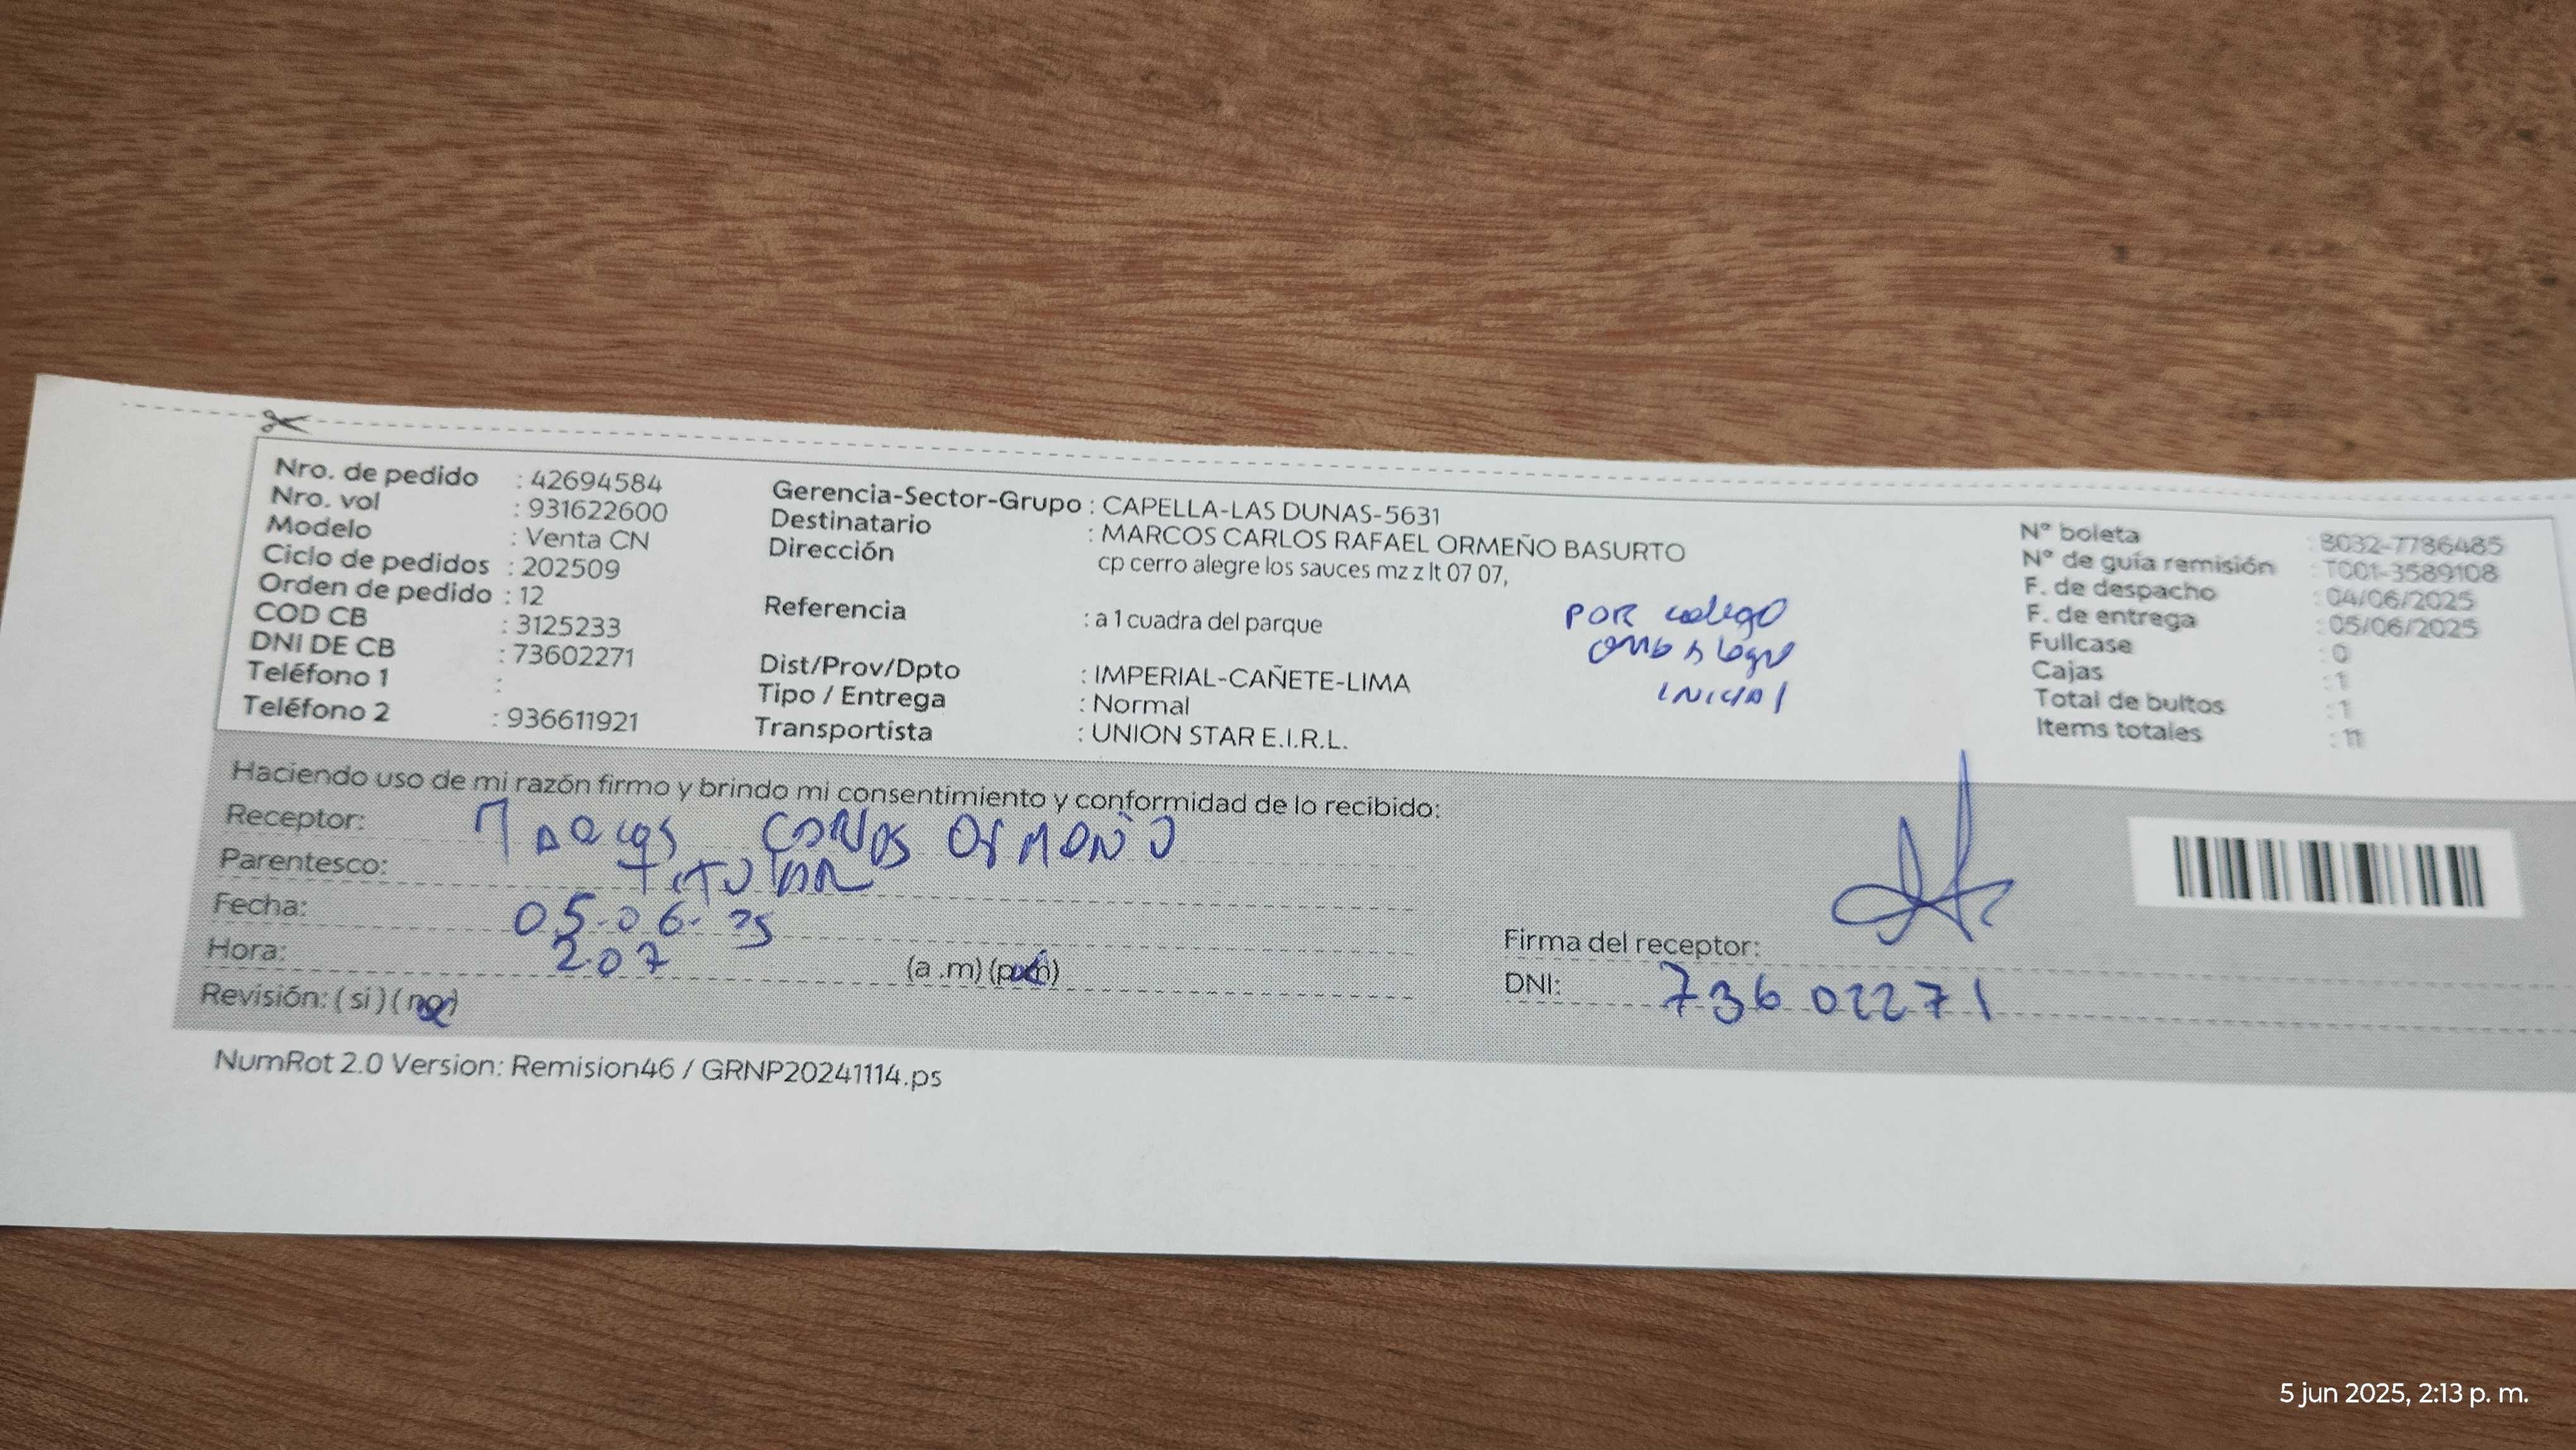 Nro. de pedido : 42694584
Nro. vol : 931622600
Modelo : Venta CN
Ciclo de pedidos : 202509
Orden de pedido : 12
COD CB : 3125233
DNI DE CB : 73602271
Teléfono 1 :
Teléfono 2 : 936611921
Gerencia-Sector-Grupo : CAPELLA-LAS DUNAS-5631
Destinatario : MARCOS CARLOS RAFAEL ORMEÑO BASURTO
Dirección cp cerro alegre los sauces mz z lt 07 07,
Referencia : a 1 cuadra del parque
Dist/Prov/Dpto : IMPERIAL-CAÑETE-LIMA
Tipo / Entrega : Normal
Transportista : UNION STAR E.I.R.L.
POR colego
INICIAl
N° boleta : B032-7786485
N° de guía remisión : T001-3589108
F. de despacho : 04/06/2025
F. de entrega : 05/06/2025
Fullcase : 0
Cajas : 1
Total de bultos : 1
Items totales : 11
Haciendo uso de mi razón firmo y brindo mi consentimiento y conformidad de lo recibido:
Receptor: Marcos Carlos ORMEÑO
Parentesco: TITULAR
Fecha: 05-06-25
Hora: 2.07 (a .m) (p.m)
Revisión: ( si ) ( no )
Firma del receptor:
DNI: 73602271
NumRot 2.0 Version: Remision46 / GRNP20241114.ps
5 jun 2025, 2:13 p. m.